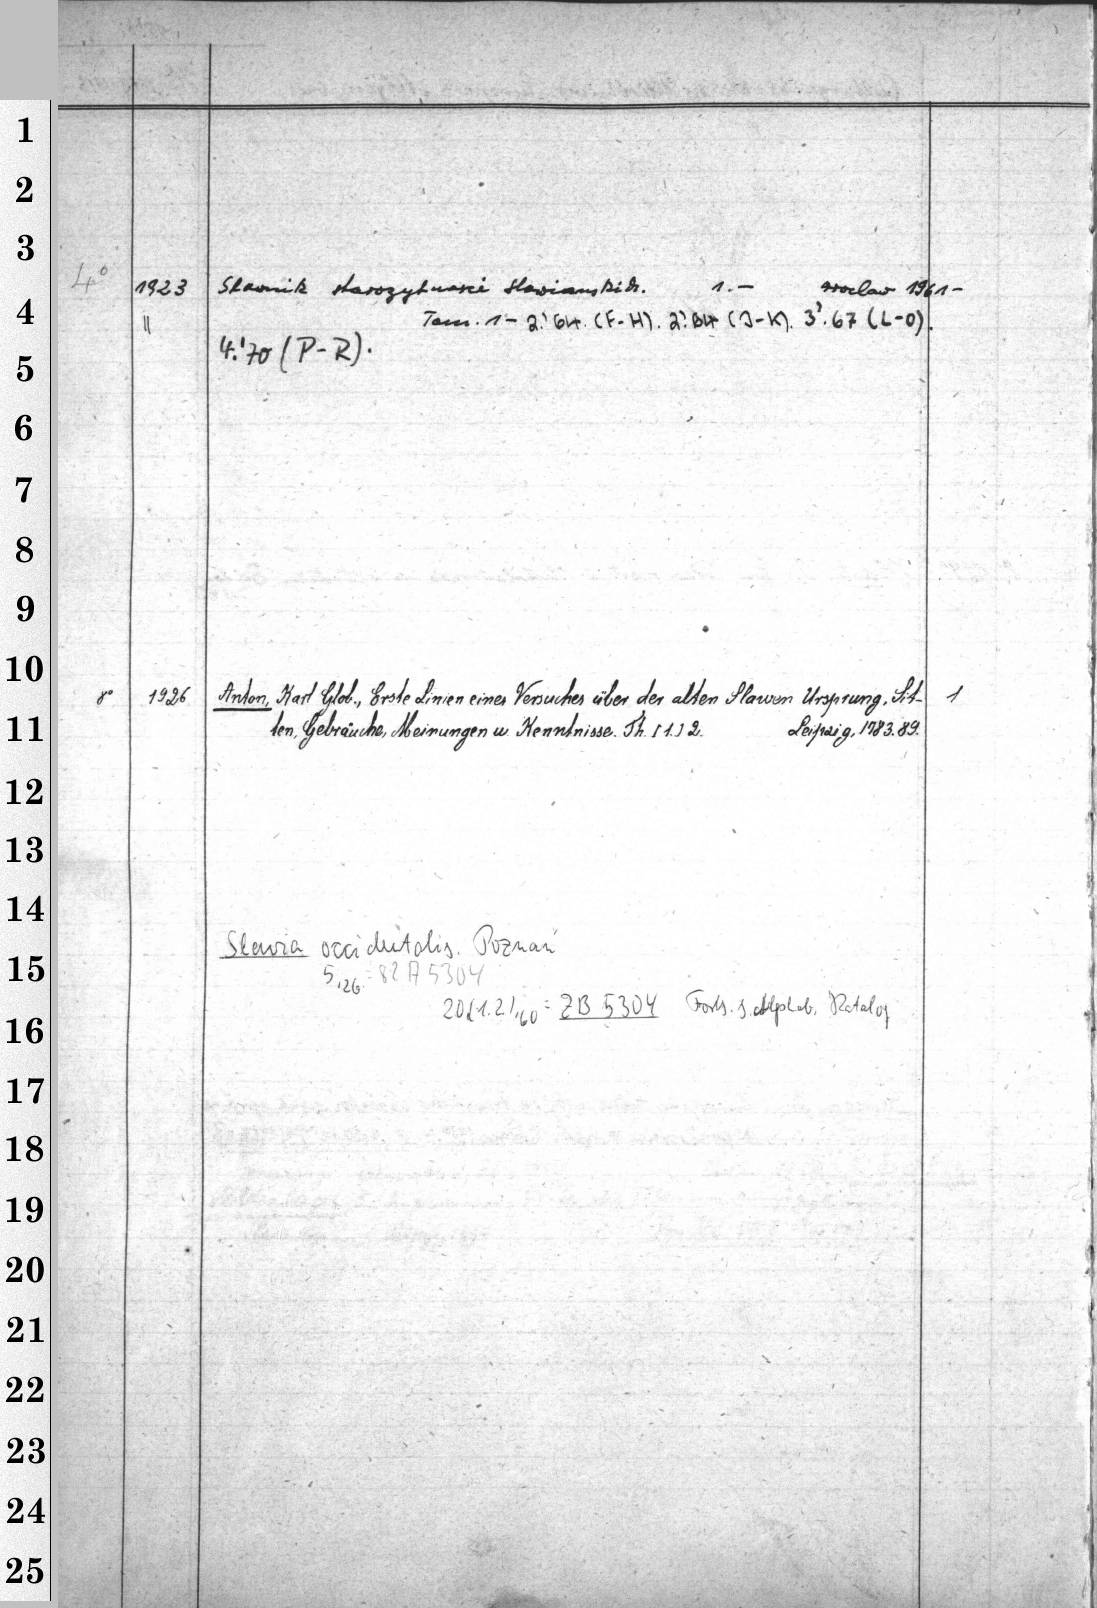 1
2
3
4
5
6
7
8
9
10
11
12
13
14
15
16
17
18
19
20
21
22
23
24
25
4° 1923 Słownik starożytności Słowiańskich. 1.— Wrocław 1961—
" Tom. 1— 2.'64. (F-H). 2.'64 (J-K). 3'.67 (L-O).
4.'70 (P-R).
8° 1926 Anton, Karl Glob., Erste Linien eines Versuches über der alten Slawen Ursprung, Sit- 1
ten, Gebräuche, Meinungen u. Kenntnisse. Th. [1.] 2. Leipzig, 1783.89.
Slavia occidentalis. Poznań
5,26. = 82 A 5304
20(1.2),60 = ZB 5304 Forts. s. Alphab. Katalog